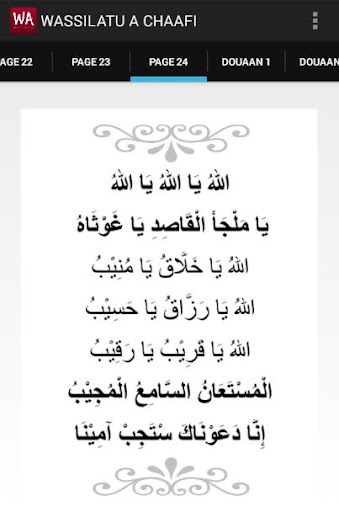 WA WASSILATU A CHAAFI
AGE 22 PAGE 23 PAGE 24 DOUAAN 1 DOUAAN
اللهُ يَا اللهُ يَا اللهُ
يَا مَلْجَأَ الْقَاصِدِ يَا غَوْثَاهُ
اللهُ يَا خَلَّاقُ يَا مُنِيْبُ
اللهُ يَا رَزَّاقُ يَا حَسِيْبُ
اللهُ يَا قَرِيْبُ يَا رَقِيْبُ
الْمُسْتَعَانُ السَّامِعُ الْمُجِيْبُ
إِنَّا دَعَوْنَاكَ سْتَجِبْ آمِيْنَا